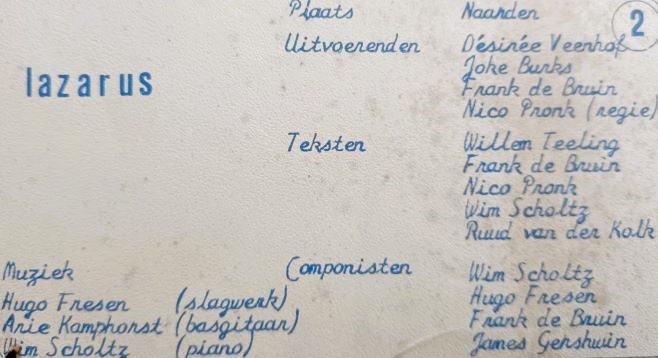 Plaats Naarden
2
Uitvoerenden Désirée Veenhof
Joke Burks
Frank de Bruin
lazarus
Nico Pronk (regie)
Teksten Willem Teeling
Frank de Bruin
Nico Pronk
Wim Scholtz
Ruud van der Kolk
Muziek Componisten Wim Scholtz
Hugo Fresen (slagwerk) Hugo Fresen
Arie Kamphorst (basgitaar) Frank de Bruin
Wim Scholtz (piano) James Gershwin